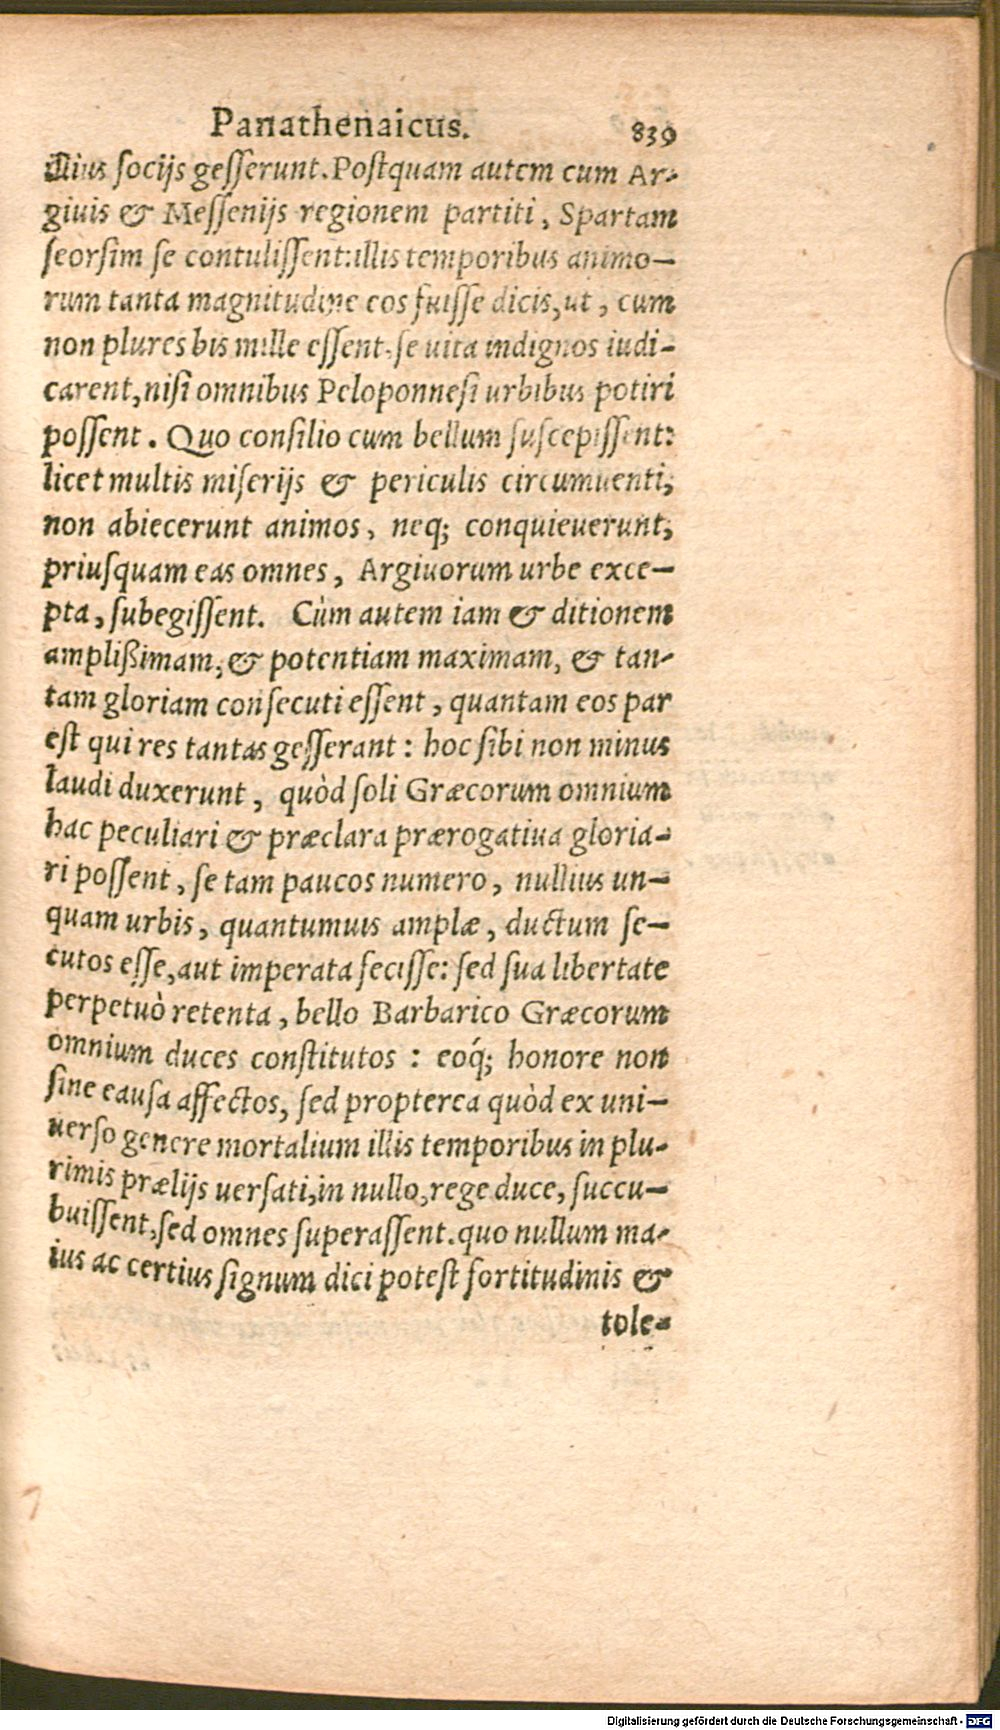 Panathenaicus. 839
illius socijs gesserunt. Postquam autem cum Ar-
giuis & Messenijs regionem partiti, Spartam
seorsim se contulissent: illis temporibus animo-
rum tanta magnitudine eos fuisse dicis, ut, cum
non plures bis mille essent, se uita indignos iudi-
carent, nisi omnibus Peloponnesi urbibus potiri
possent. Quo consilio cum bellum suscepissent:
licet multis miserijs & periculis circumuenti,
non abiecerunt animos, neq; conquieuerunt,
priusquam eas omnes, Argiuorum urbe exce-
pta, subegissent. Cùm autem iam & ditionem
amplißimam, & potentiam maximam, & tan-
tam gloriam consecuti essent, quantam eos par
est qui res tantas gesserant: hoc sibi non minus
laudi duxerunt, quòd soli Græcorum omnium
hac peculiari & præclara prærogatiua gloria-
ri possent, se tam paucos numero, nullius un-
quam urbis, quantumuis amplæ, ductum se-
cutos esse, aut imperata fecisse: sed sua libertate
perpetuò retenta, bello Barbarico Græcorum
omnium duces constitutos: eóq; honore non
sine causa affectos, sed propterea quòd ex uni-
uerso genere mortalium illis temporibus in plu-
rimis prælijs uersati, in nullo, rege duce, succu-
buissent, sed omnes superassent. quo nullum ma-
ius ac certius signum dici potest fortitudinis &
tole-
Digitalisierung gefördert durch die Deutsche Forschungsgemeinschaft - DFG